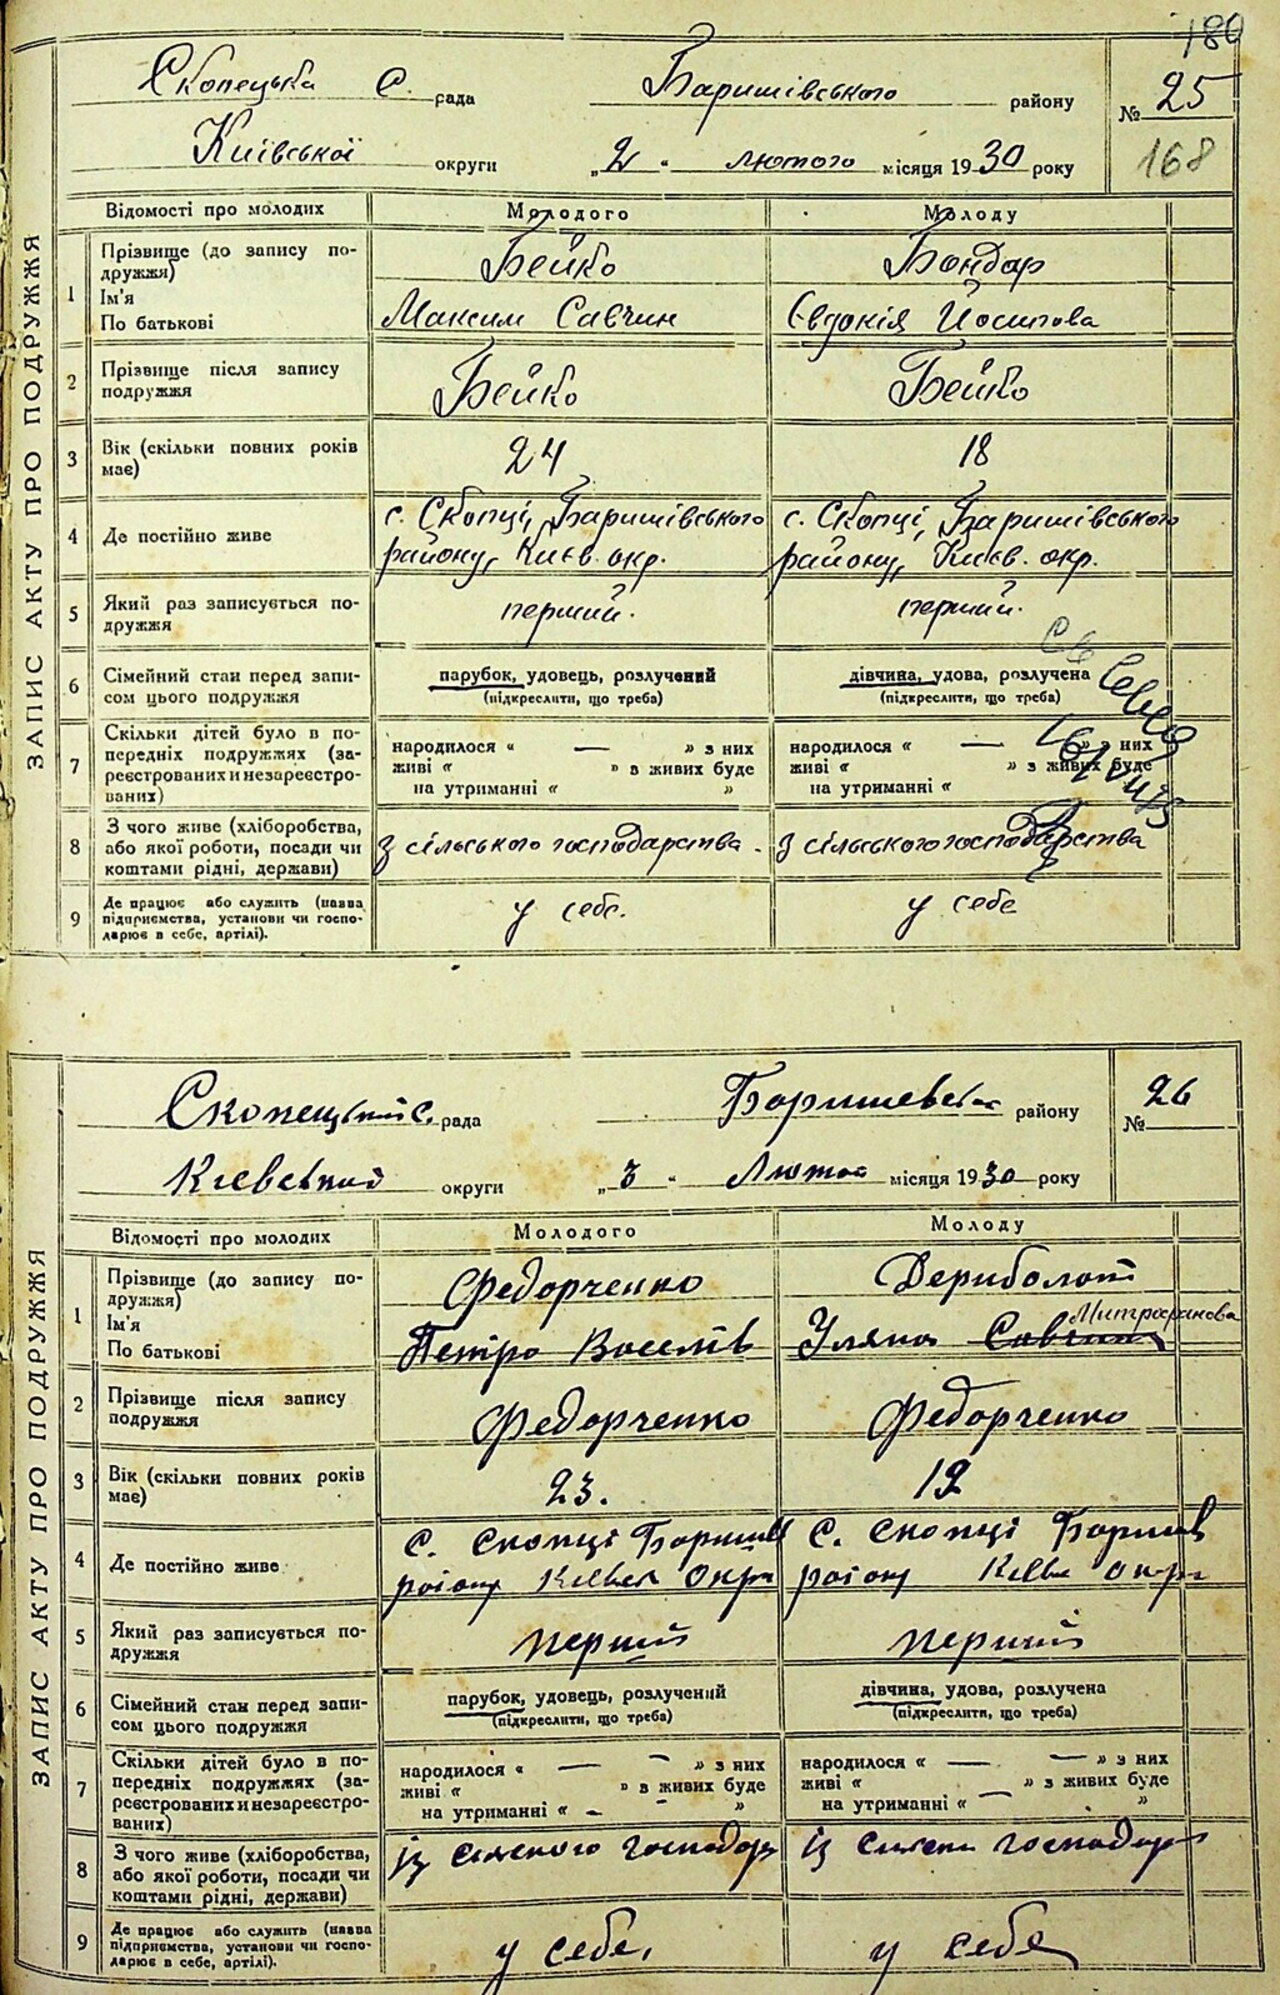 180
Скопецька С. рада Баришівського району № 25
Київської округи „2“ лютого місяця 1930 року 168
ЗАПИС АКТУ ПРО ПОДРУЖЖЯ
Відомості про молодих Молодого Молоду
1 Прізвище (до запису по-
дружжя) Бейко Бондар
Ім'я
По батькові Максим Савчин Євдокія Йосипова
2 Прізвище після запису
подружжя Бейко Бейко
3 Вік (скільки повних років
має) 24 18
4 Де постійно живе с. Скопці, Баришівського с. Скопці, Баришівського
району, Києв. окр. району, Києв. окр.
5 Який раз записується по-
дружжя перший. перший.
6 Сімейний стан перед запи-
сом цього подружжя парубок, удовець, розлучений дівчина, удова, розлучена
(підкреслити, що треба) (підкреслити, що треба)
7 Скільки дітей було в по-
передніх подружжях (за-
реєстрованих и незареєстро-
ваних)
народилося “ — ” з них народилося “ — ” з них
живі “ ” в живих буде живі “ ” з живих буде
на утриманні “ ” на утриманні “
8 З чого живе (хліборобства,
або якої роботи, посади чи
коштами рідні, держави) З сільського господарства. З сільського господарства
9 Де працює або служить (назва
підприємства, установи чи госпо-
дарює в себе, артілі). у себе. у себе
Скопецький с. рада району № 26
округи „3“ місяця 1930 року
ЗАПИС АКТУ ПРО ПОДРУЖЖЯ
Відомості про молодих Молодого Молоду
1 Прізвище (до запису по-
дружжя) Федорченко Дериболот
Ім'я Митрофанова
По батькові Петро Васелів Уляна Савчина
2 Прізвище після запису
подружжя Федорченко Федорченко
3 Вік (скільки повних років
має) 23. 19
4 Де постійно живе С. Скопці Баришів С. Скопці Баришів
5 Який раз записується по-
дружжя перший перший
6 Сімейний стан перед запи-
сом цього подружжя парубок, удовець, розлучений дівчина, удова, розлучена
(підкреслити, що треба) (підкреслити, що треба)
7 Скільки дітей було в по-
передніх подружжях (за-
реєстрованих и незареєстро-
ваних)
народилося “ — — ” з них народилося “ — — ” з них
живі “ ” в живих буде живі “ ” з живих буде
на утриманні “ — — ” на утриманні “ — ”
8 З чого живе (хліборобства,
або якої роботи, посади чи
коштами рідні, держави) із господар із господар
9 Де працює або служить (назва
підприємства, установи чи госпо-
дарює в себе, артілі). у себе. у себе